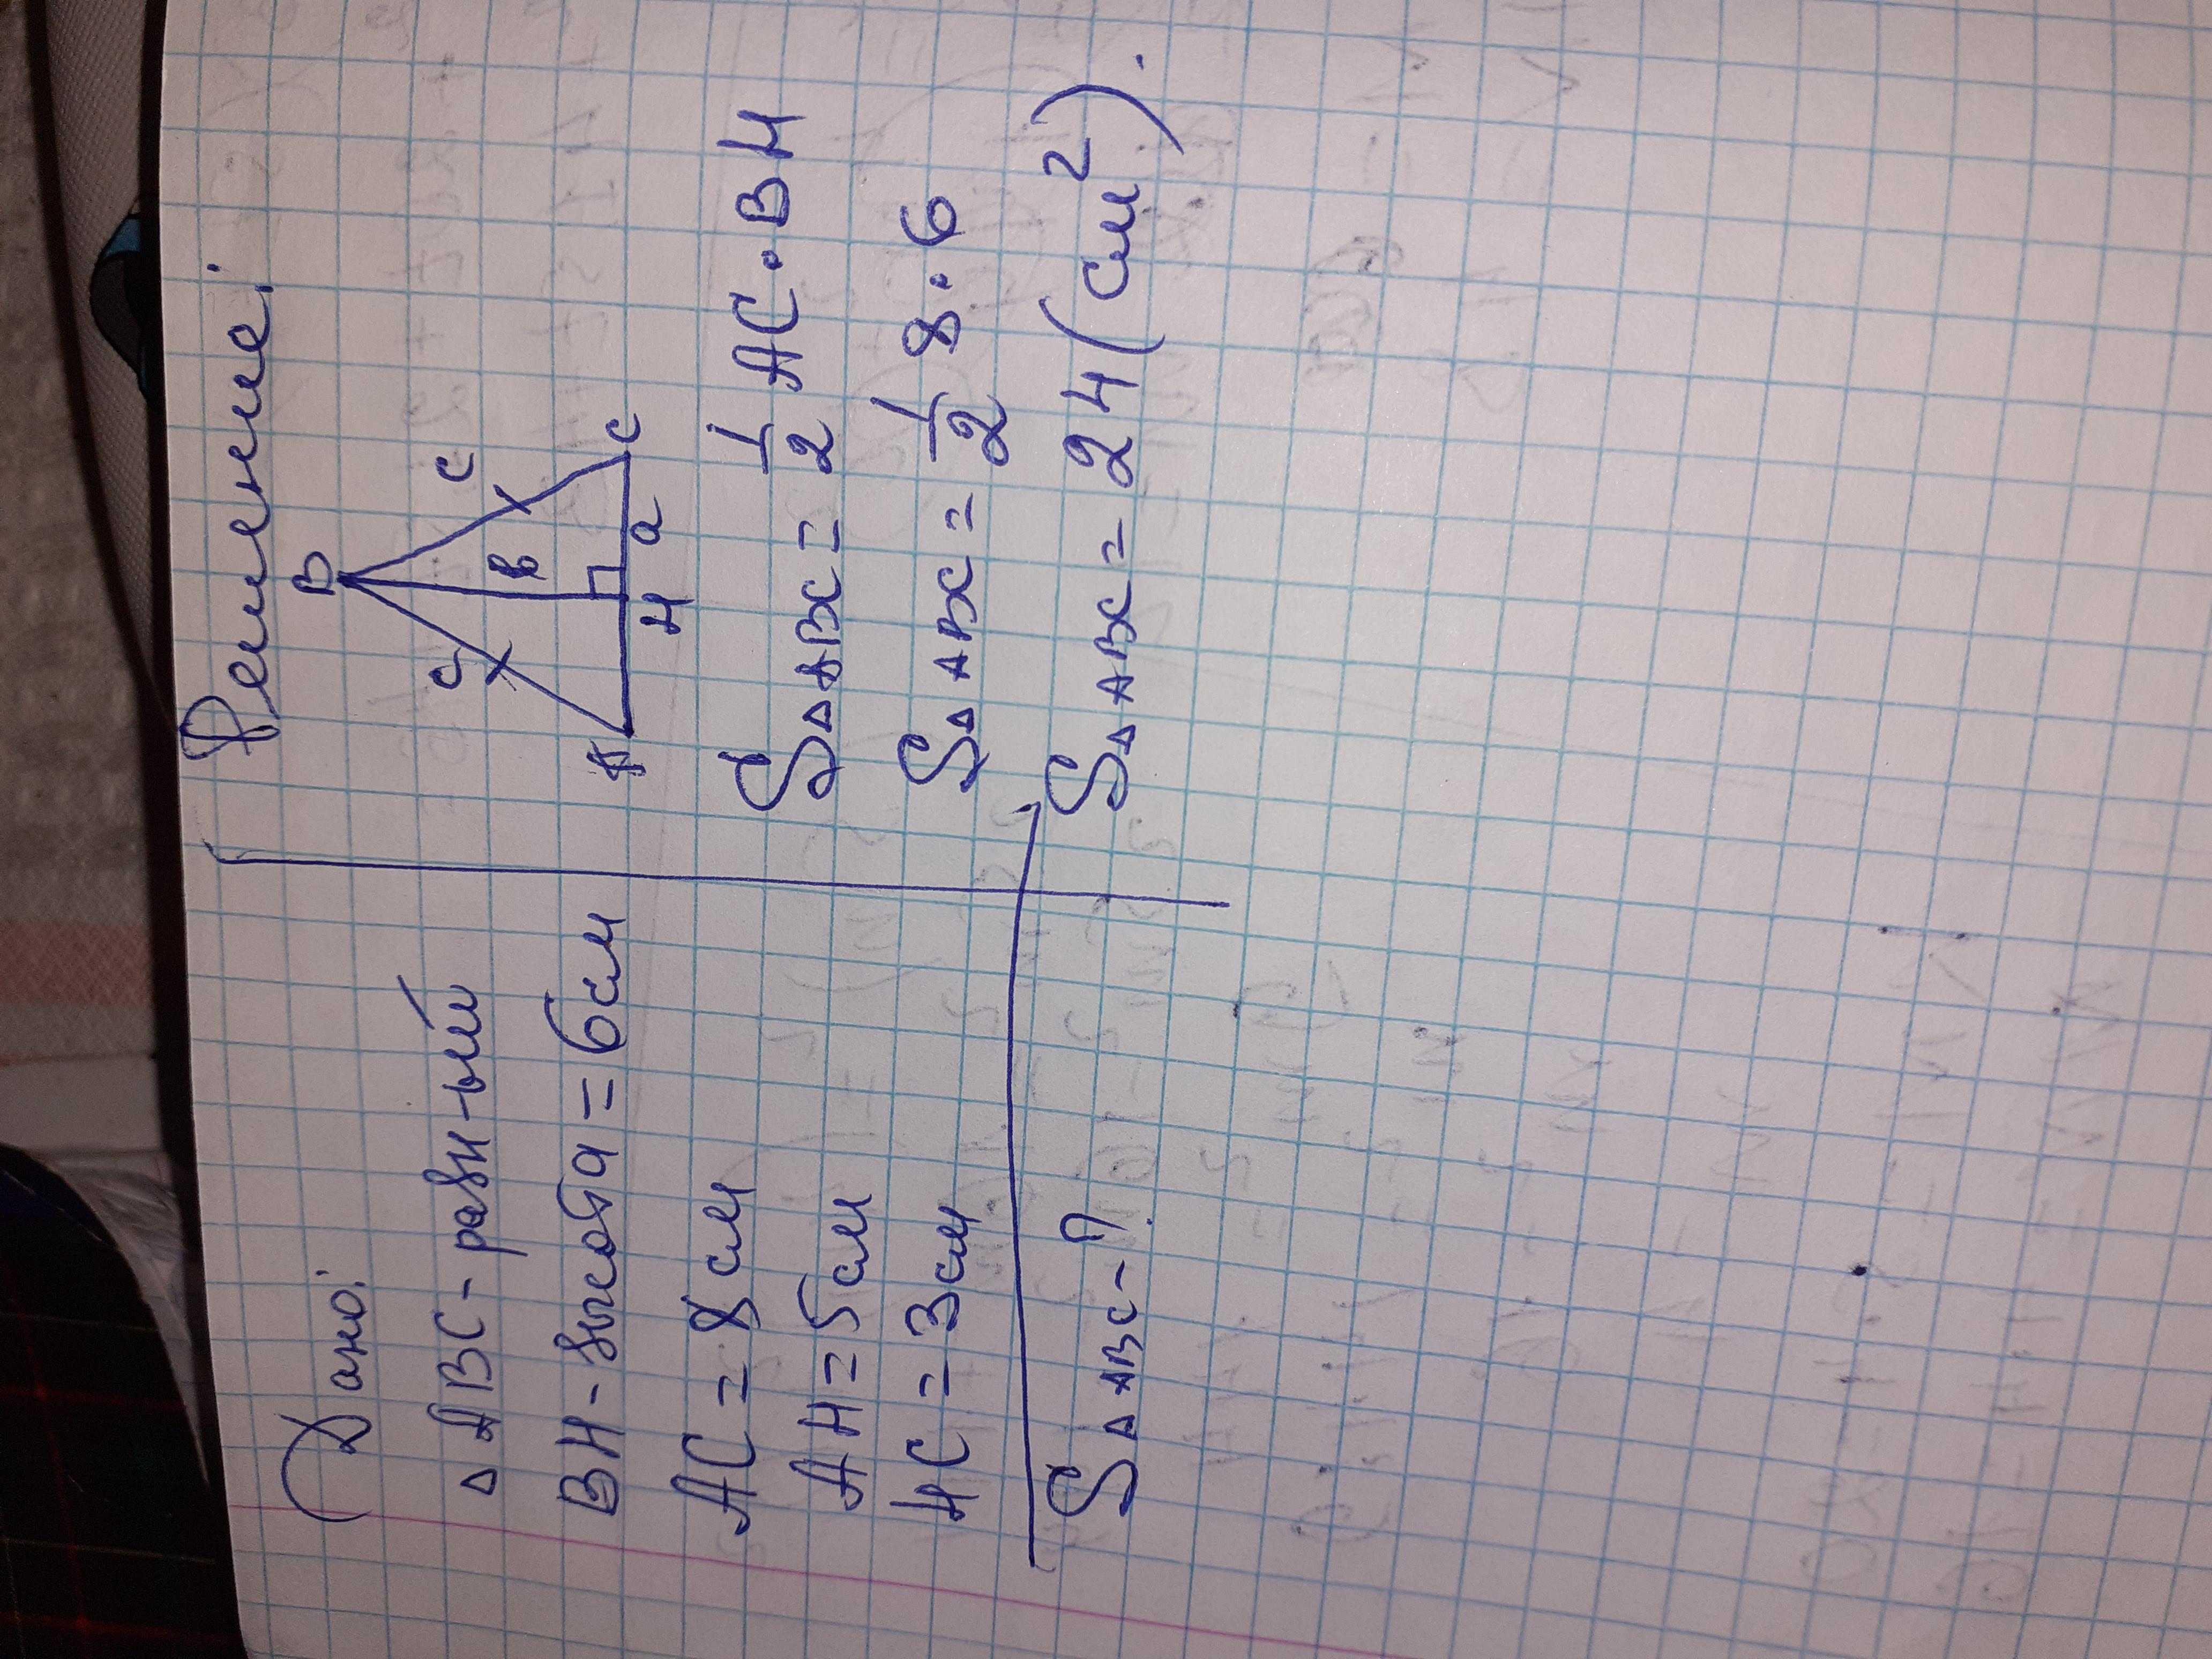 Дано:
△ABC - равн-ый
BH - высота = 6 см
AC = 8 см
AH = 5 см
HC = 3 см
S△ABC - ?
Решение:
B
c c
в
A H a C
S△ABC = 1/2 AC · BH
S△ABC = 1/2 8 · 6
S△ABC = 24 (см²).